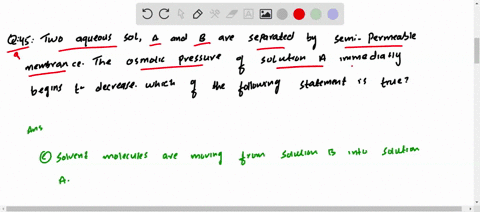 Q:45: Two aqueous sol, A and B are separated by semi-permeable
membrance. The osmolic pressure of solution A immediatly
begins to decrease. which of the following statement is true?
Ans
(C) Solvent molecules are moving from solution B into solution
A.